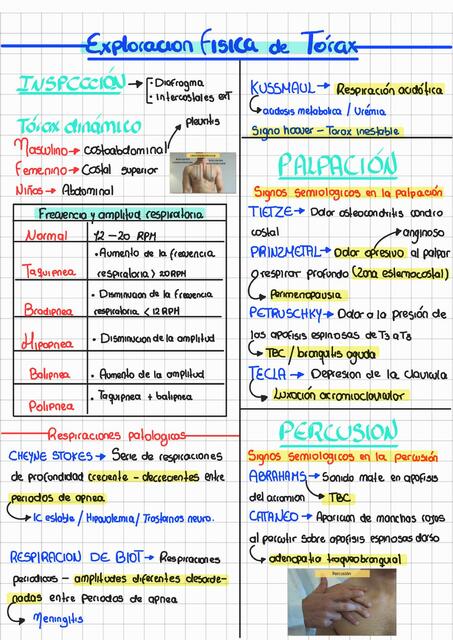 Exploracion Fisica de Tórax
INSPECCIÓN → Diafragma
• Intercostales ext
Tórax dinámico
pleuritis
Masculino → costoabdominal
Femenino → Costal superior
Niños → Abdominal
Frecuencia y amplitud respiratoria
Normal 12 - 20 RPM
Taquipnea • Aumento de la frecuencia
respiratoria > 20RPM
Bradipnea • Disminucion de la frecuencia
respiratoria < 12RPM
Hipopnea • Disminucion de la amplitud
Batipnea • Aumento de la amplitud
Polipnea • Taquipnea + batipnea
Respiraciones patologicas
CHEYNE STOKES → Serie de respiraciones
de profondidad creciente - decrecientes entre
periodos de apnea
IC estable / Hipovolemia / Trastornos neuro.
RESPIRACION DE BIOT → Respiraciones
periodicas - amplitudes diferentes desorde-
nadas entre periodos de apnea
Meningitis
KUSSMAUL → Respiración acidótica
acidosis metabolica / Urémia
Signo hoover - Torax inestable
PALPACIÓN
Signos semiologicos en la palpación
TIETZE → Dolor osteocondritis condro
costal → anginoso
PRINZMETAL → Dolor opresivo al palpar
o respirar profundo (Zona esternocostal)
Perimenopausia
PETRUSCHKY → Dolor a la presión de
las apofisis espinosas de T3 a T8
TBC / bronquitis aguda
TECLA → Depresion de la Clavicula
Luxación acromioclavicular
PERCUSION
Signos semiologicos en la percusión
ABRAHAMS → Sonido mate en apofisis
del acromion → TBC
CATANEO → Aparicion de manchas rojas
al percutir sobre apofisis espinosas dorso
adenopatia traqueobronquial
Percusión